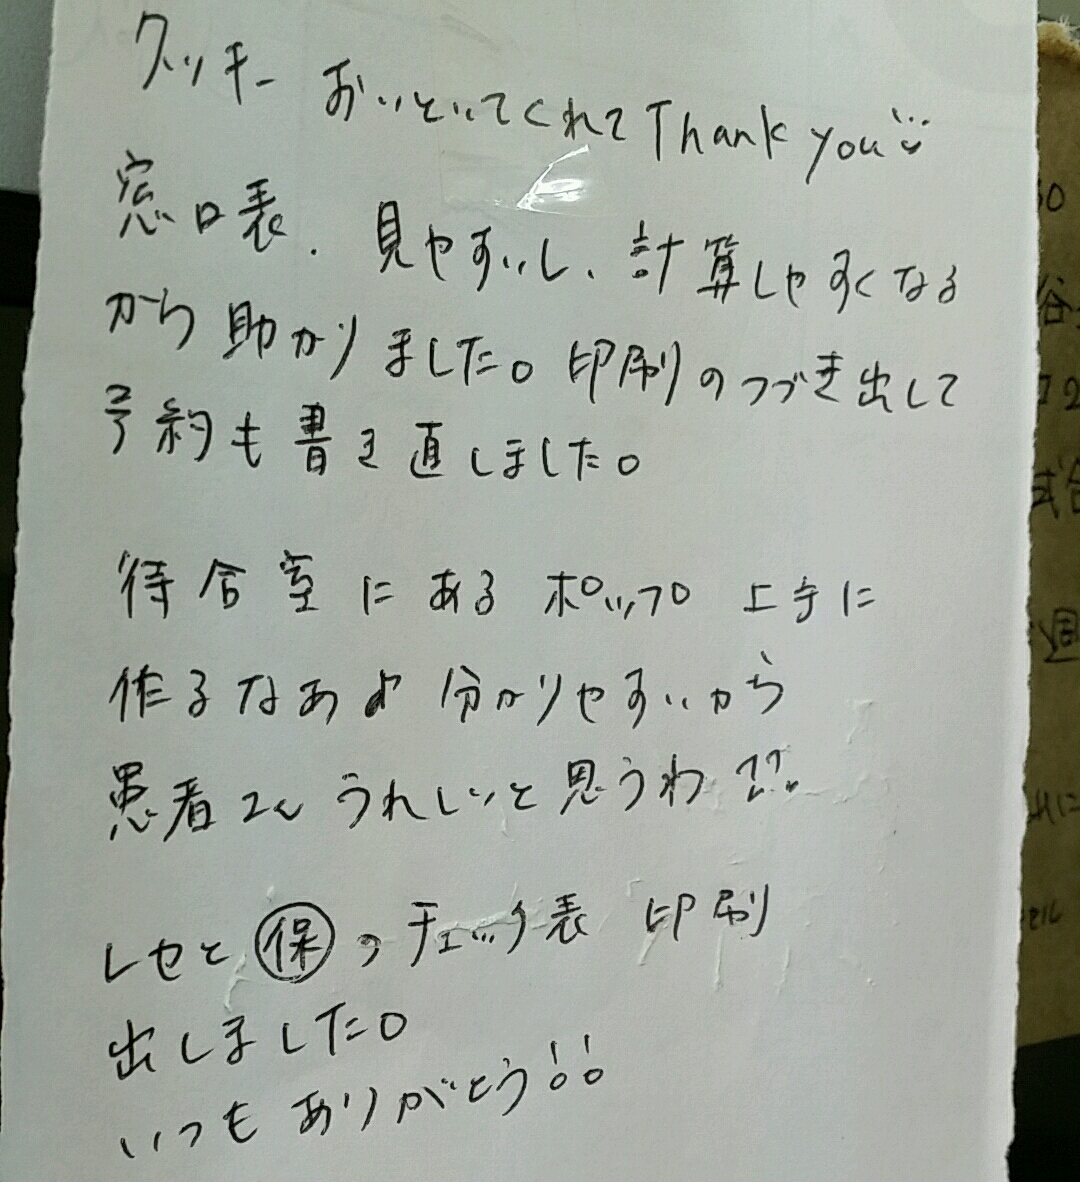 クッキー おいといてくれて Thank you
窓口表、見やすいし、計算しやすくなる
から 助かりました。印刷のつづき出して
予約も書き直しました。
待合室にある ポップ 上手に
作るなあ 分かりやすいから
患者さん うれしいと思うわ !!
レセと 保 のチェック表 印刷
出しました。
いつも ありがとう!!
谷
試合
週